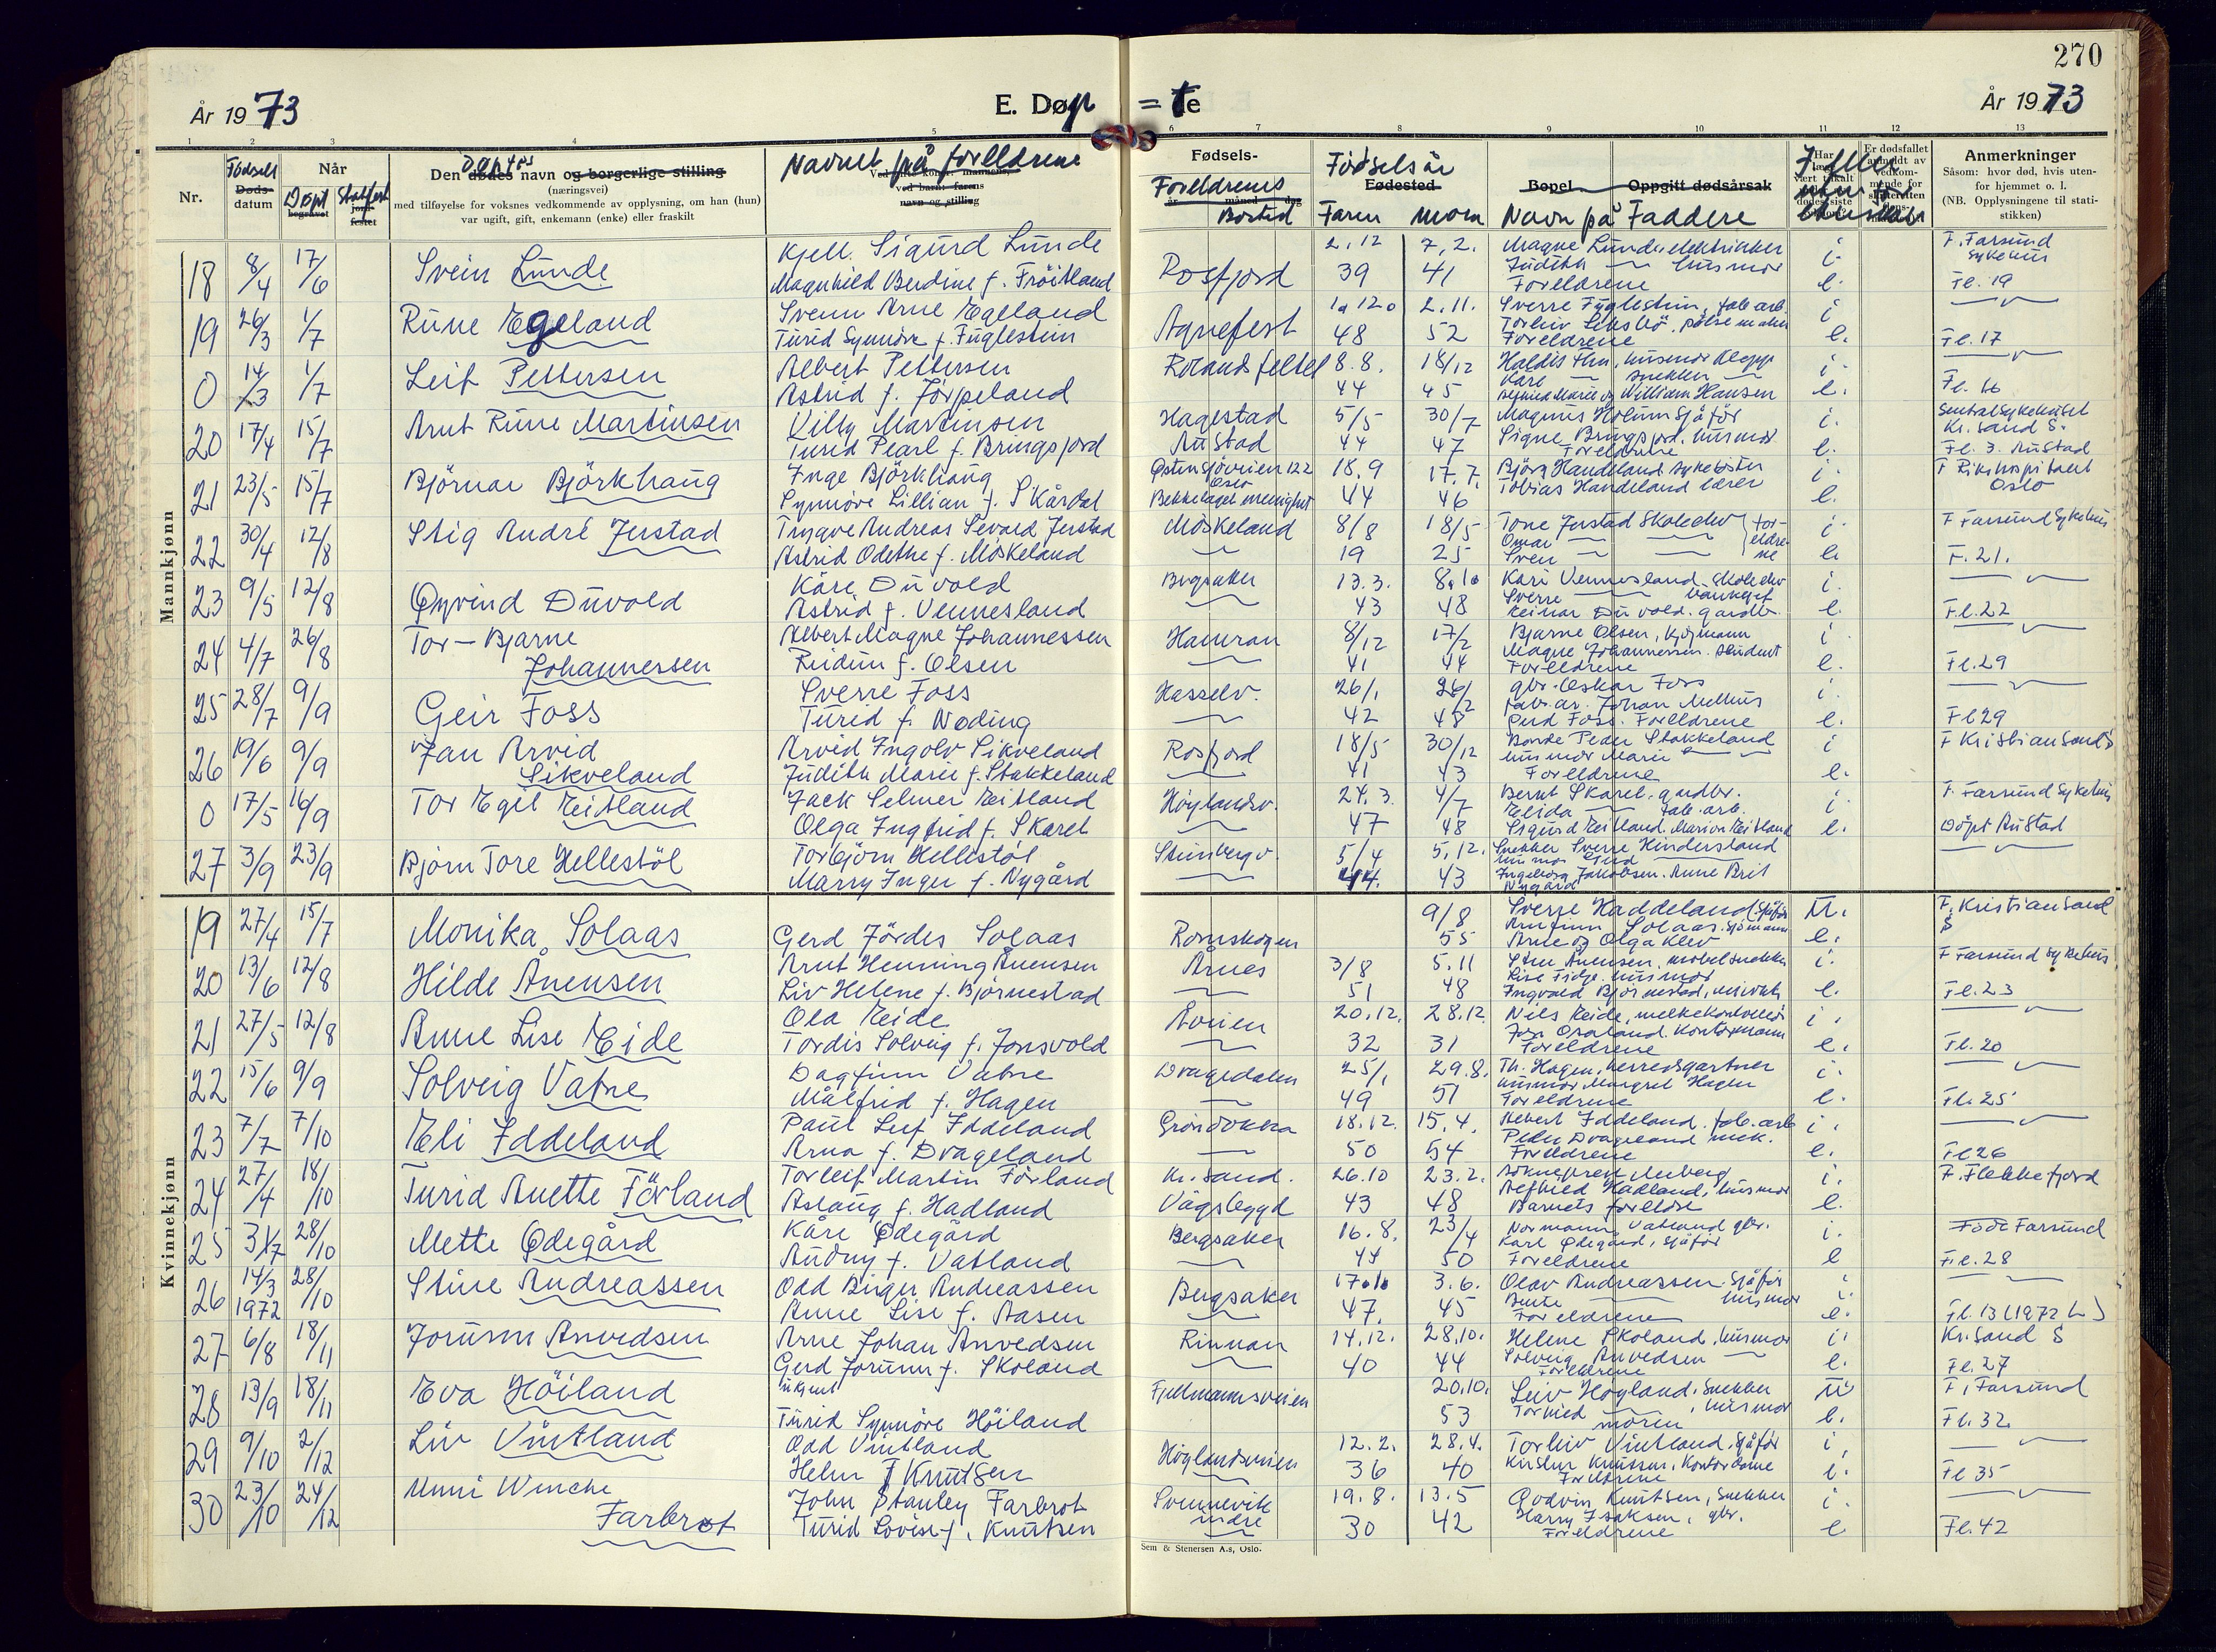 270
År 1973
E. Døp = te
År 1973
1 2 3 4 5 6 7 8 9 10 11 12 13
Nr.
Fødsels
Døds-
datum
Når
Døpt
begravet
Stadfest
jord-
festet
Døptes
Den dødes navn og borgerlige stilling
(næringsvei)
med tilføyelse for voksnes vedkommende av opplysning, om han (hun)
var ugift, gift, enkemann (enke) eller fraskilt
Navnet på foreldrene
navn og stilling
Fødsels-
Foreldrenes
Bosted
Fødselsår
Fødested
Faren Moren
Bopel Oppgitt dødsårsak
Navn på Faddere
Anmerkninger
Såsom: hvor død, hvis uten-
for hjemmet o. l.
(NB. Opplysningene til stati-
stikken)
Mannkjønn
18 8/4 17/6 Svein Lunde
Kjell Sigurd Lunde
Magnhild Berdine f. Fröitland
Rosfjord
2.12 39
7.2. 41
Magne Lunde, elektriker
Judith — husmor
Foreldrene
i. e.
F. Farsund
Sykehus
Fl. 19
19 26/3 1/7 Rune Egeland
Svenn Arne Egeland
Turid Synnöve f. Fuglestein
Agnefest
48
2.11. 52
Sverre Fuglestein, fab. arb.
Foreldrene
i e.
Fl. 17
0 14/3 1/7 Leif Pettersen
Albert Pettersen
Astrid f. Jörpeland
Rolandsfeltet
8.8. 44
18/12 45
Kåre — snekker —
William Hansen
i. e.
Fl. 16
20 17/4 15/7 Arnt Rune Martinsen
Willy Martinsen
Turid Pearl f. Bringsjord
Hagestad
Austad
5/5 44
30/7 47
Magnus Holum Sjåför
Signe Bringsjord. husmor
Foreldrene
i. e.
Sentralsykehuset
Kr. sand S.
Fl. 3. Austad
21 23/5 15/7 Björnar Björkhaug
Inge Björkhaug
Synnöve Lillian f. Skårdal
Østensjöveien 122
Oslo
Bekkelaget menighet
18.9 44
17.7. 46
Björg Handeland sykesöster
Tobias Handeland lærer
i. e.
F Rikshospitalet
Oslo
22 30/4 12/8 Stig André Jerstad
Trygve Andreas Sevald Jerstad
Astrid Odethe f. Möskeland
Möskeland
8/8 19
18/5 25
Tone Jerstad Skoleelev
Omar — —
Sven — —
for-
eldre-
ne
i. e.
F Farsund Sykehus
F. 21.
23 9/5 12/8 Øyvind Duvold
Kåre Duvold
Astrid f. Vennesland
Bergsaker
13.3. 43
8.10 48
Kari Vennesland. Skoleelev
Sverre — banksjef
Reinar Duvold. gardbr.
i. e.
Fl. 22
24 4/7 26/8 Tor-Bjarne
Johannessen
Albert Magne Johannessen
Reidun f. Olsen
Hamran
8/12 41
17/2 44
Bjarne Olsen, kjöpmann
Magne Johannessen. student
Foreldrene
i. e.
Fl. 29
25 28/7 9/9 Geir Foss
Sverre Foss
Turid f. Noding
Hasselv.
26/1 42
26/2 48
gbr. Oskar Foss
fab. ar. Johan Melhus
Gud Foss. Foreldrene
i. e.
Fl 29
26 19/6 9/9 Jan Arvid
Sikveland
Arvid Ingolv Sikveland
Judith Marie f. Stakkeland
Rosfjord
18/5 41
30/12 43
Bonde Peder Stakkeland
husmor Marie —
Foreldrene
i e.
F Kristiansand S
0 17/5 16/9 Tor Egil Eitland
Jack Selmer Eitland
Olga Ingfrid f. Skarel
Höylandsv.
24.3. 47
4/7 48
Bernt Skarel. gardbr.
Elida — fab. arb.
Sigurd Eitland. Marion Eitland
i e.
F. Farsund Sykehus
Döpt Austad
27 3/9 23/9 Björn Tore Hellestöl
Torbjörn Hellestöl
Marry Inger f. Nygård
Steinbergv.
5/4 44.
5.12. 43
Snekker Sverre Hindersland
Ingeborg Jakobsen. Anne Brit
Nygård
Kvinnekjønn
19 27/4 15/7 Monika Solaas
Gerd Jördis Solaas
Romskogen
9/8 55
Sverre Haddeland, Sjåför
Arnfinn Solaas. Sjömann
Arne og Olga Klev
U. e.
F. Kristiansand
S
20 13/6 12/8 Hilde Ånensen
Arnt Henning Ånensen
Liv Helene f. Björnestad
Årnes
3/8 51
5.11 48
Sten Ånensen, möbelsnekker
Lise Fidje. husmor
Ingvald Björnestad,
i. e.
F Farsund Sykehus
Fl. 23
21 27/5 12/8 Anne Lise Eide
Ola Eide
Tordis Solveig f. Jonsvold
Åveien
20.12. 32
28.12. 31
Nils Eide, melkekontrollör
Foreldrene
i. e.
Fl. 20
22 15/6 9/9 Solveig Vatne
Dagfinn Vatne
Målfrid f. Hagen
Dragedalen
25/1 49
29.8. 51
Th. Hagen, herredsgartner
husmor Margret Hagen
Foreldrene
i. e.
Fl. 25
23 7/7 7/10 Eli Iddeland
Paul Leif Iddeland
Arna f. Drageland
Gröndokka
18.12. 50
15.4. 54
Hebert Iddeland. fab. arb
Peder Drageland mek.
Foreldrene
i. e.
Fl 26
24 27/4 18/10 Turid Anette Förland
Torleif Martin Förland
Aslaug f. Hadland
Kr. sand.
Vågsbygd
26.10 43
23.2. 48
Sokneprest Auberg
Alfhild Hadland, husmor
Barnets foreldre
i. e.
F. Flekkefjord
25 31/7 28/10 Mette Ødegård
Kåre Ødegård
Audny f. Vatland
Bergsaker
16.8. 44
23/4 50
Normann Vatland gbr.
Karl Ødegård, Sjåför
Foreldrene
i. e
Född Farsund
Fl. 28
26 14/3 1972 28/10 Stine Andreassen
Odd Birger Andreassen
Anne Lise f. Aasen
Bergsaker
17.10 47.
3.6. 45
Olav Andreassen. Sjåför
Bente — husmor
Foreldrene
i. e.
Fl. 13 (1972 L)
27 6/8 18/11 Jorunn Anvedsen
Arne Johan Anvedsen
Gerd Jorunn f. Skoland
Rinnan
14.12. 40
28.10. 44
Helene Skoland, husmor
Solveig Anvedsen —
Foreldrene
i. e.
Kr. Sand S
Fl. 27
28 13/9 18/11 Eva Höiland
ukjent
Turid Synnöve Höiland
Fjellmannsveien
20.10. 53
Leiv Höyland, Snekker
Tormod — , husmor
moren
U e.
F. Farsund
Fl. 32
29 9/10 2/12 Liv Vintland
Odd Vintland
Helen f Knutsen
Höylandsveien
12.2. 36
28.4. 40
Torleiv Vintland, Sjåför
Kirsten Knutsen, Kontordame
Foreldrene
i. e.
Fl 35
30 23/10 24/12 Unni Wenche
Farbrot
John Stanley Farbrot
Turid Lovise f. Knutsen
Svennevik
indre
19.8. 30
13.5 42
Godvin Knutsen, Snekker
Harry Isaksen, gbr.
Foreldrene
i. e
Fl. 42
Sem & Stenersen A.s, Oslo.